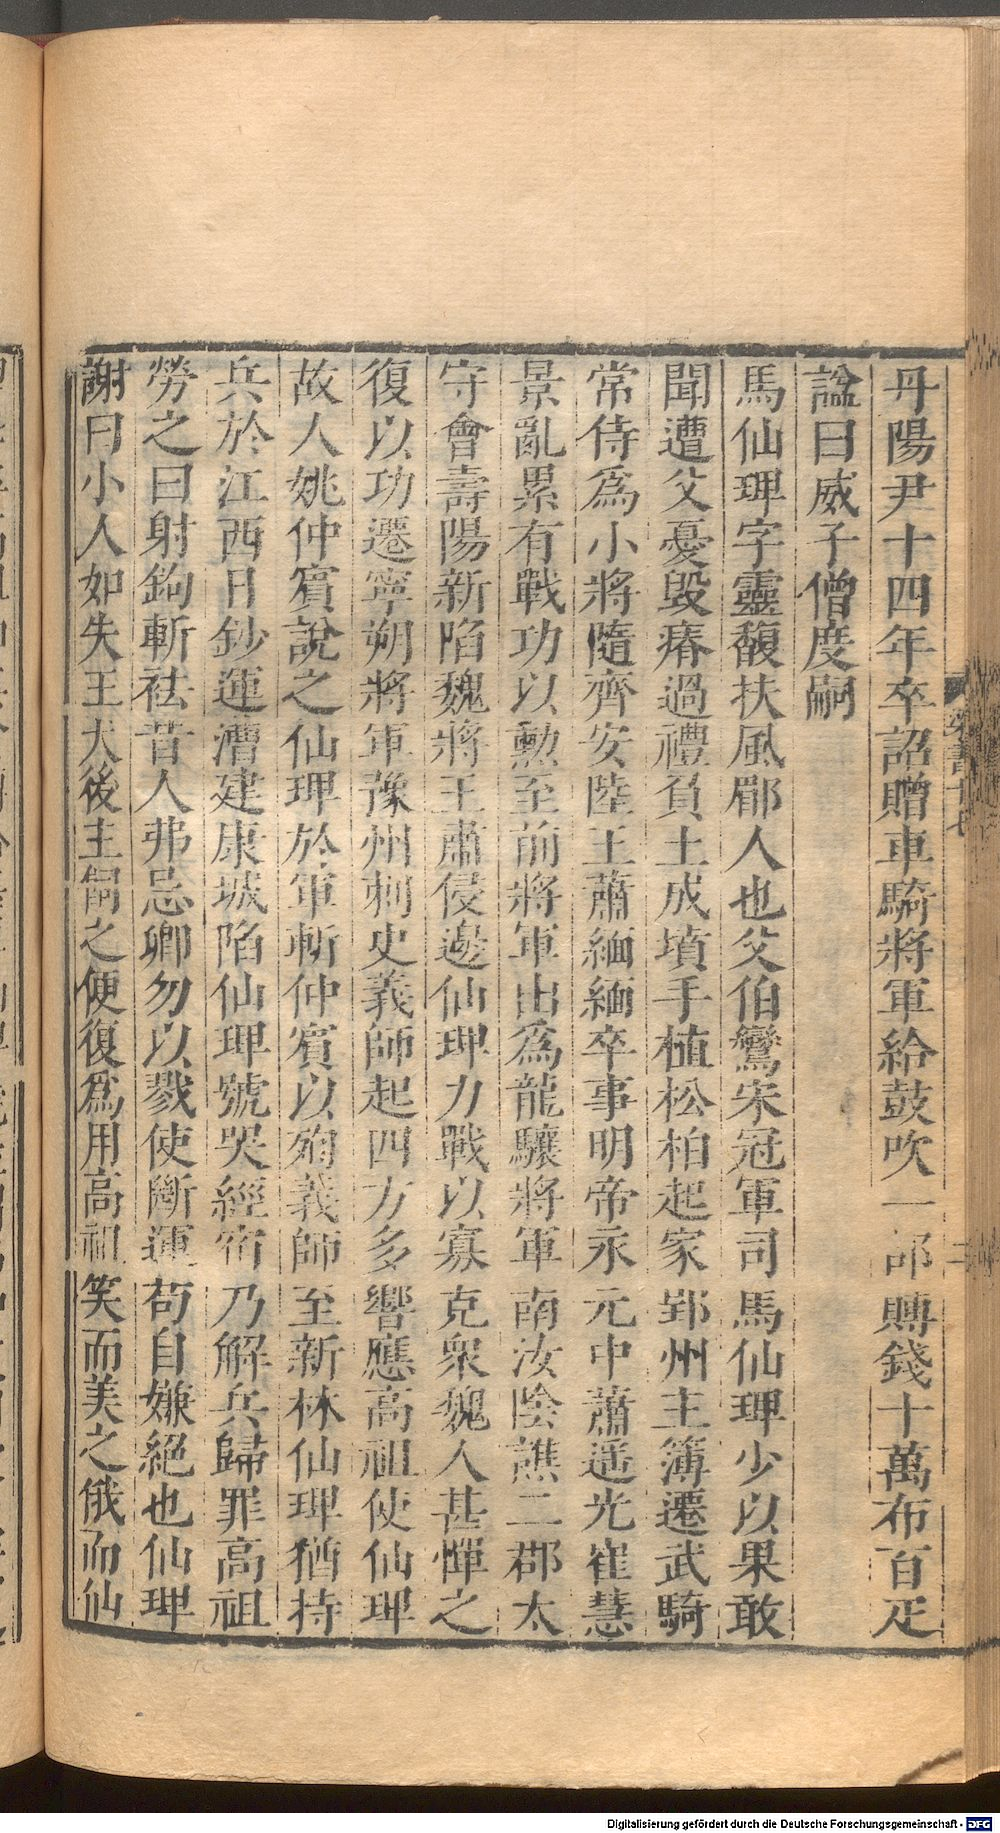 丹陽尹十四年卒詔贈車騎將軍給鼓吹一部賻錢十萬布百疋
諡曰威子僧度嗣
馬仙琕字靈馥扶風郿人也父伯鸞宋冠軍司馬仙琕少以果敢
聞遭父憂毀瘠過禮負土成墳手植松柏起家郢州主簿遷武騎
常侍為小將隨齊安陸王蕭緬緬卒事明帝永元中蕭遥光崔慧
景亂累有戰功以勳至前將軍出為龍驤將軍南汝陰譙二郡太
守會壽陽新陷魏將王肅侵邊仙琕力戰以寡克衆魏人甚憚之
復以功遷寧朔將軍豫州刺史義師起四方多響應高祖使仙琕
故人姚仲賓說之仙琕於軍斬仲賓以殉義師至新林仙琕猶持
兵於江西日鈔運漕建康城陷仙琕號哭經宿乃解兵歸罪高祖
勞之曰射鉤斬袪昔人弗忌卿勿以戮使斷運苟自嫌絕也仙琕
謝曰小人如失主犬後主飼之便復為用高祖笑而美之俄而仙
Digitalisierung gefördert durch die Deutsche Forschungsgemeinschaft - DFG